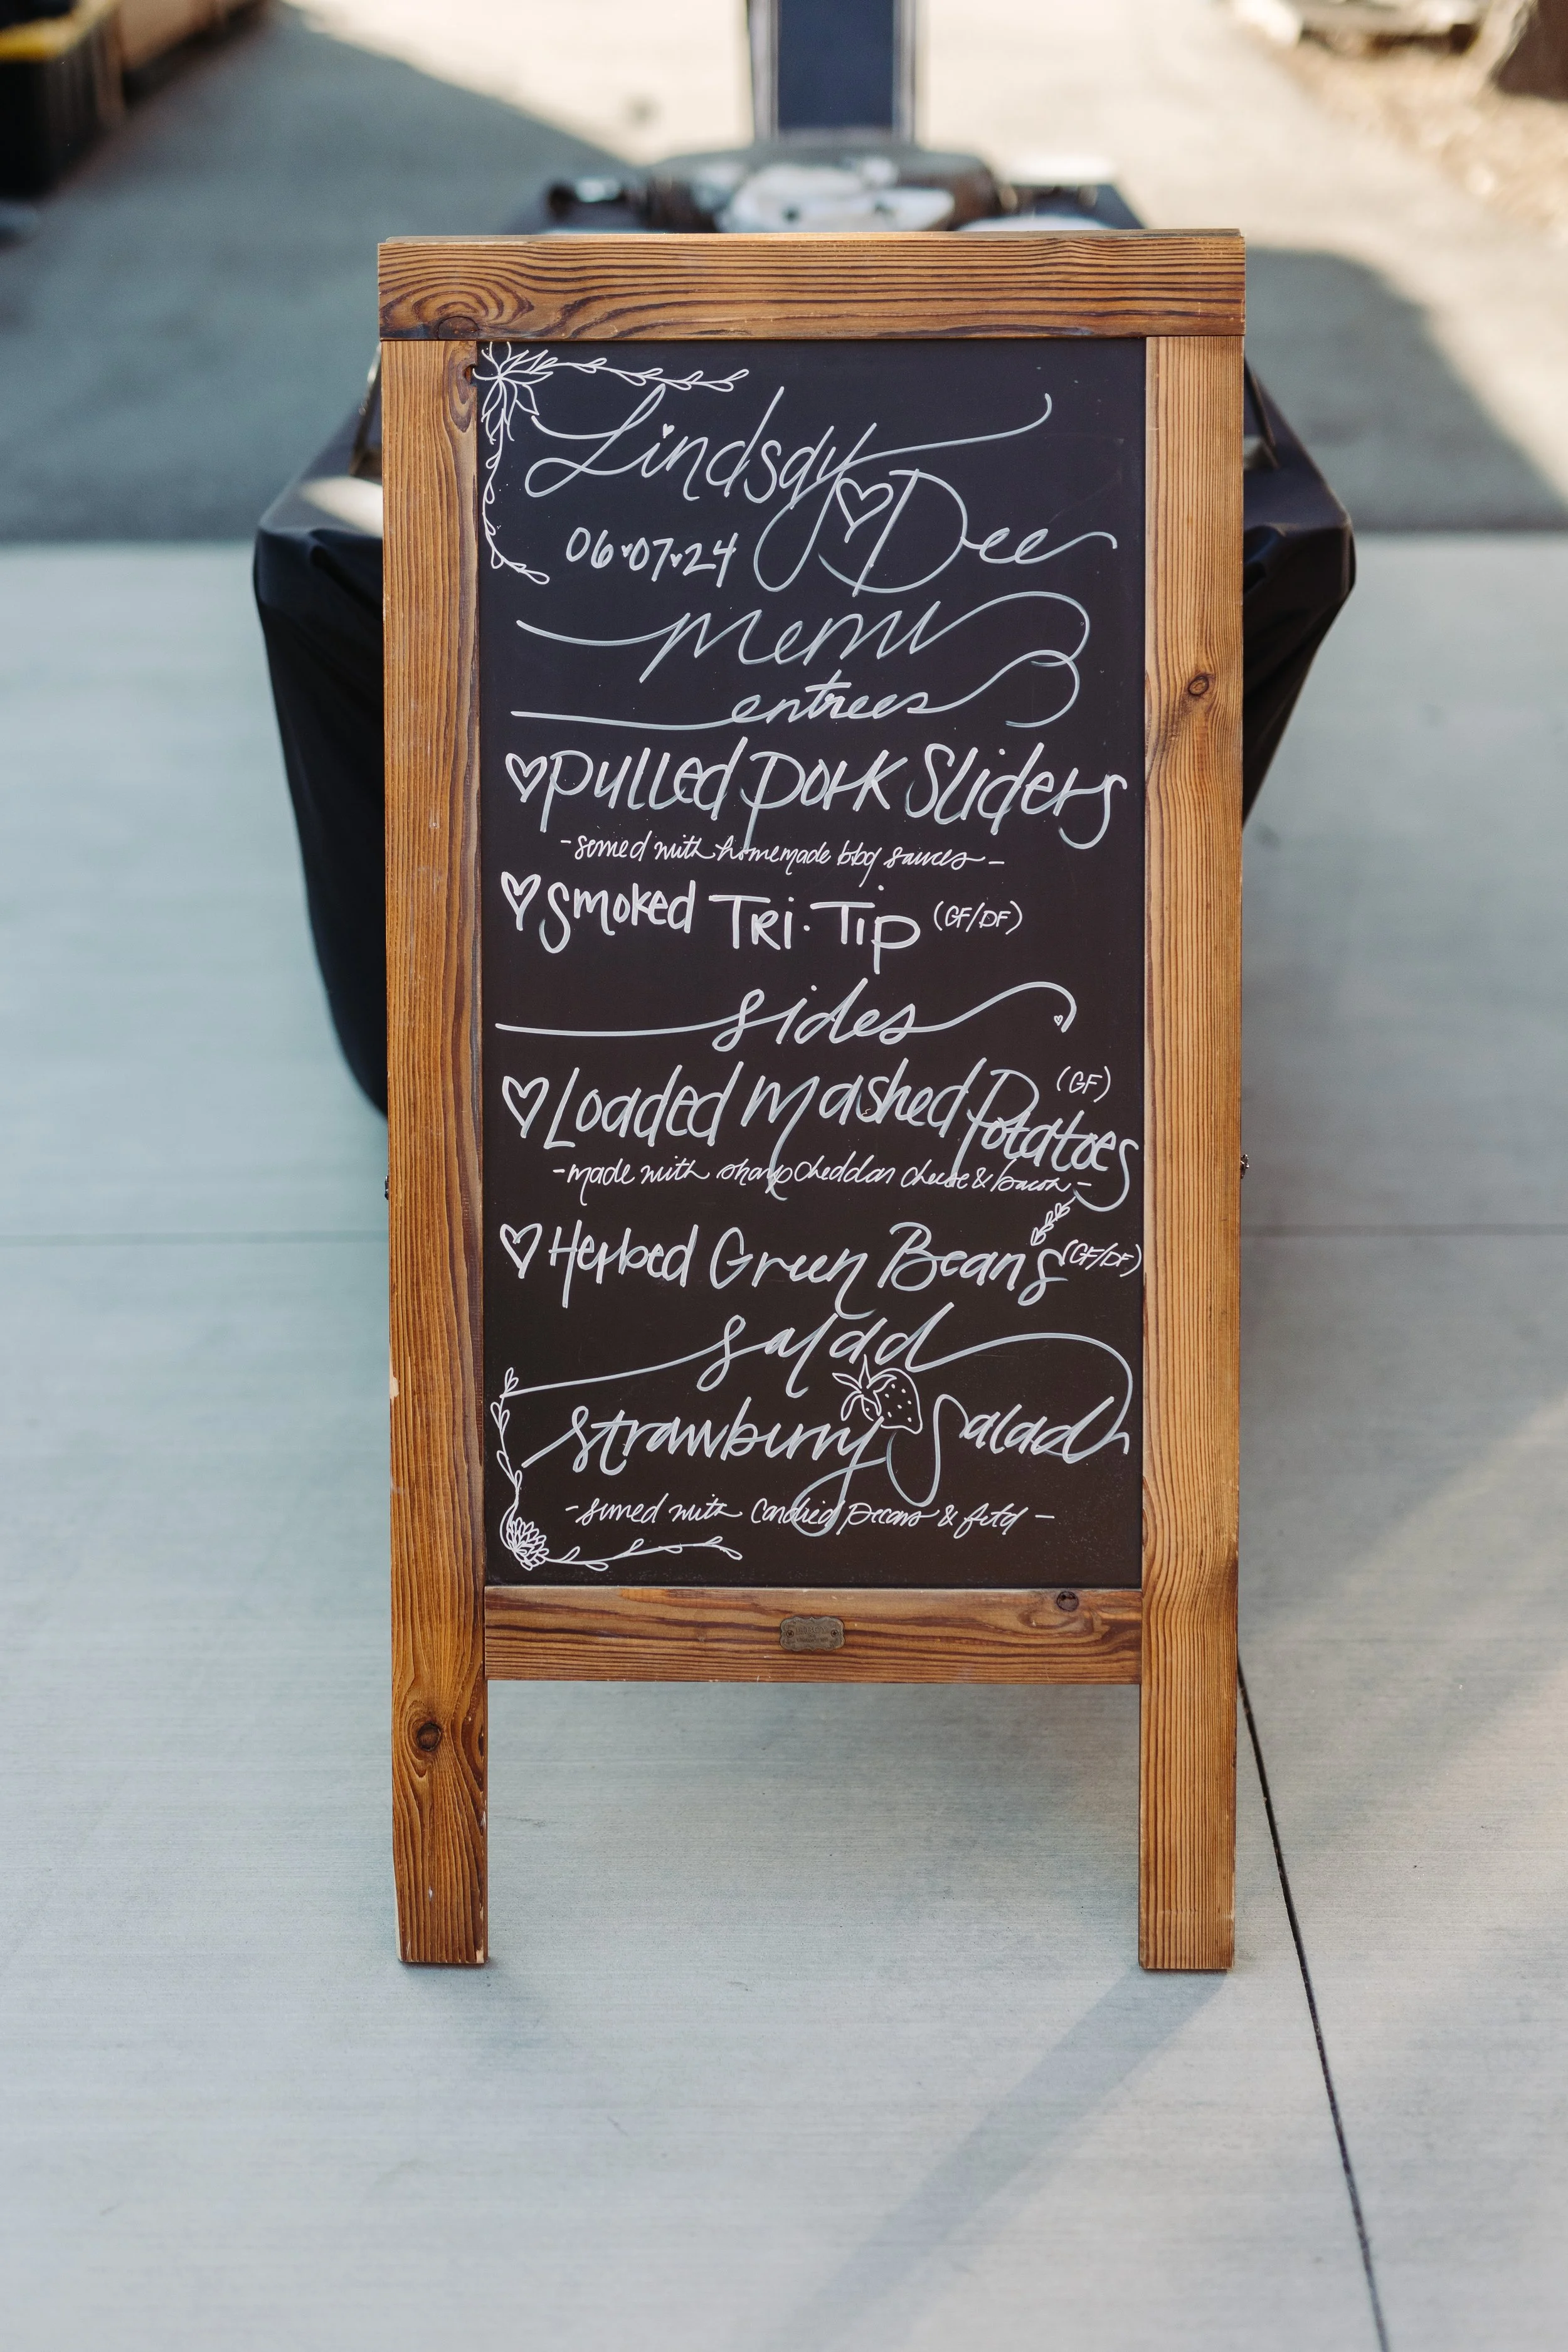 Lindsay ♡ Dee
06·07·24
menu
entrees
♡ Pulled Pork Sliders
- served with homemade bbq sauces -
♡ Smoked Tri·Tip (GF/DF)
sides
♡ Loaded Mashed Potatoes (GF)
- made with sharp cheddar cheese & bacon -
♡ Herbed Green Beans (GF/DF)
salad
Strawberry Salad
- served with candied pecans & feta -